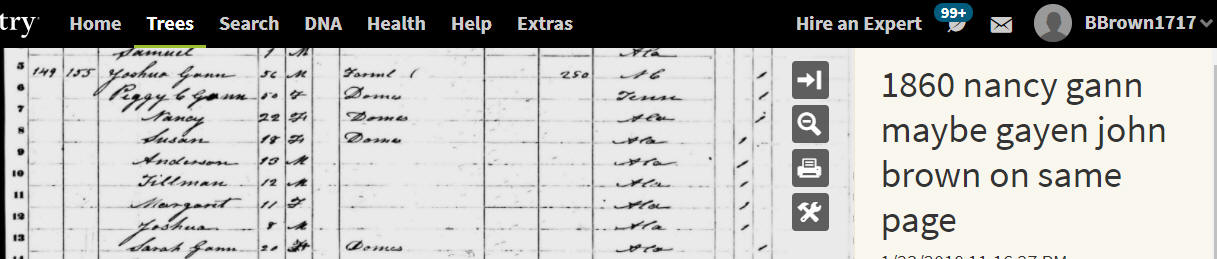 try Home Trees Search DNA Health Help Extras Hire an Expert 99+ BBrown1717
Samuel 1 M Ala
5 149 155 Joshua Gann 56 M Farml ( 250 NC /
6 Peggy C Gann 50 F Domes Tenn /
7 Nancy 22 F Domes Ala /
8 Susan 18 F Domes Ala /
9 Anderson 13 M Ala /
10 Tillman 12 M Ala /
11 Margaret 11 F Ala /
12 Joshua 8 M Ala /
13 Sarah Gann 20 F Domes Ala /
1860 nancy gann
maybe gayen john
brown on same
page